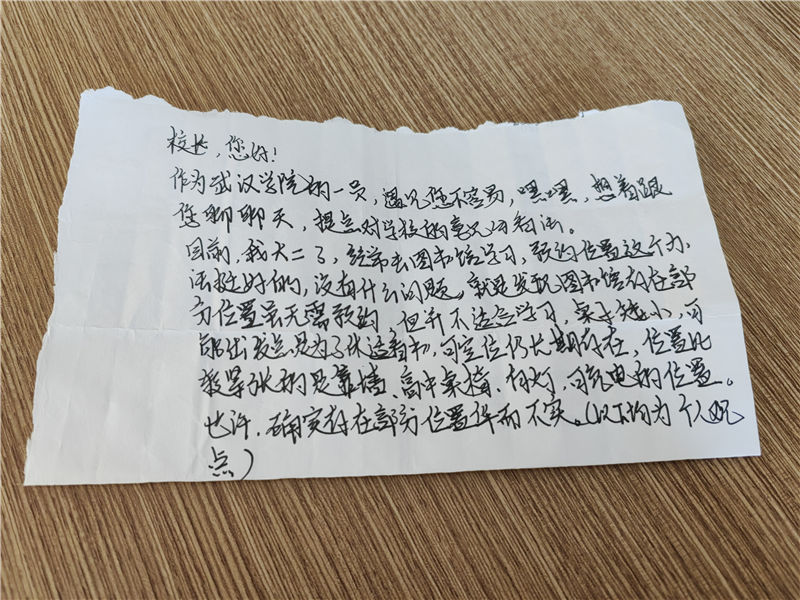 校长，您好！
作为武汉学院的一员，遇见您不容易，嘿嘿，想着跟
您聊聊天，提点对学校的意见和看法。
目前，我大二了，经常去图书馆学习，预约位置这个办
法挺好的，没有什么问题。就是发现图书馆存在部
分位置虽无需预约，但并不适合学习，桌子矮小，可
能出发点是为了休适看书，可空位仍长期存在，位置比
较紧张的是靠墙、高中桌椅、有灯、可充电的位置。
也许，确实存在部分位置华而不实。（以下均为个人观
点）